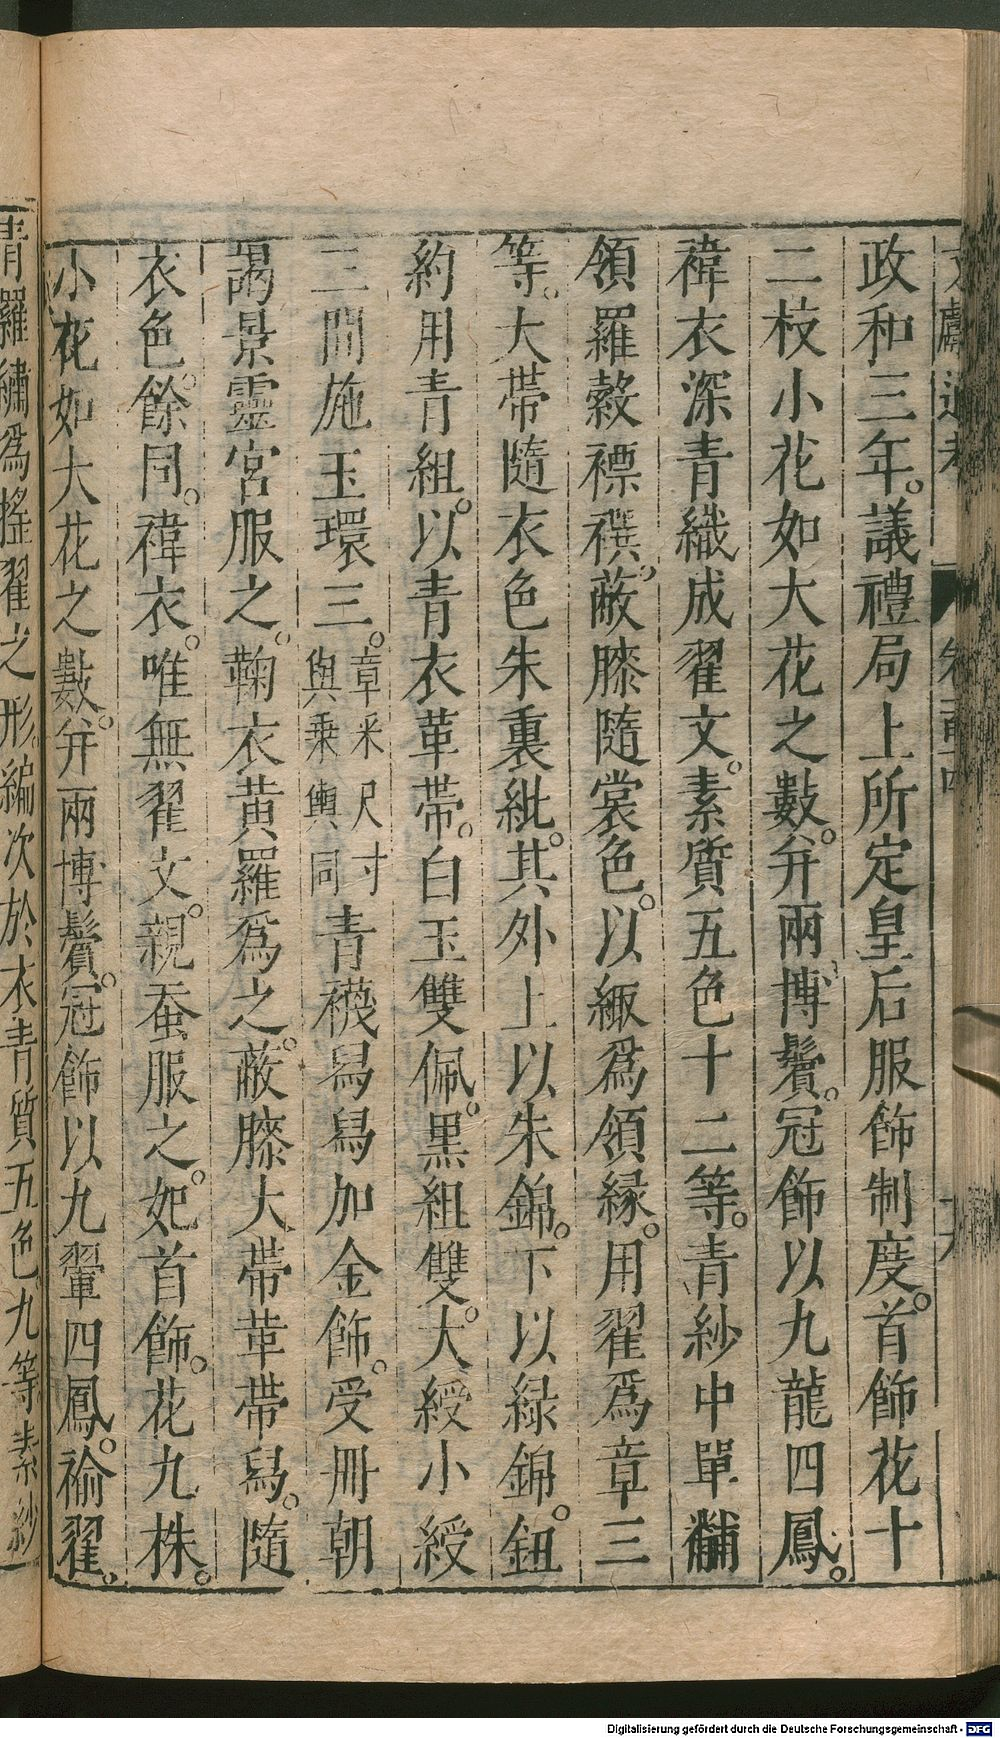 文獻通考 卷一百十四
政和三年。議禮局上所定皇后服飾制度。首飾花十
二枝小花如大花之數。并兩博鬢。冠飾以九龍四鳳。
褘衣深青織成翟文。素質五色十二等。青紗中單黼
領羅縠褾襈。蔽膝隨裳色。以緅爲領緣。用翟爲章三
等。大帶隨衣色朱裏紕。其外上以朱錦。下以綠錦。鈕
約用青組。以青衣革帶。白玉雙佩。黑組雙。大綬小綬
三間施玉環三。章采尺寸與乘輿同青襪舄舄加金飾。受冊朝
謁景靈宮服之。鞠衣黃羅爲之。蔽膝大帶革帶舄。隨
衣色。餘同。褘衣。唯無翟文。親蚕服之。妃首飾。花九株。
小花如大花之數。并兩博鬢。冠飾以九翬四鳳。褕翟。
青羅繡爲揺翟之形。編次於衣青質五色九等素紗
Digitalisierung gefördert durch die Deutsche Forschungsgemeinschaft - DFG